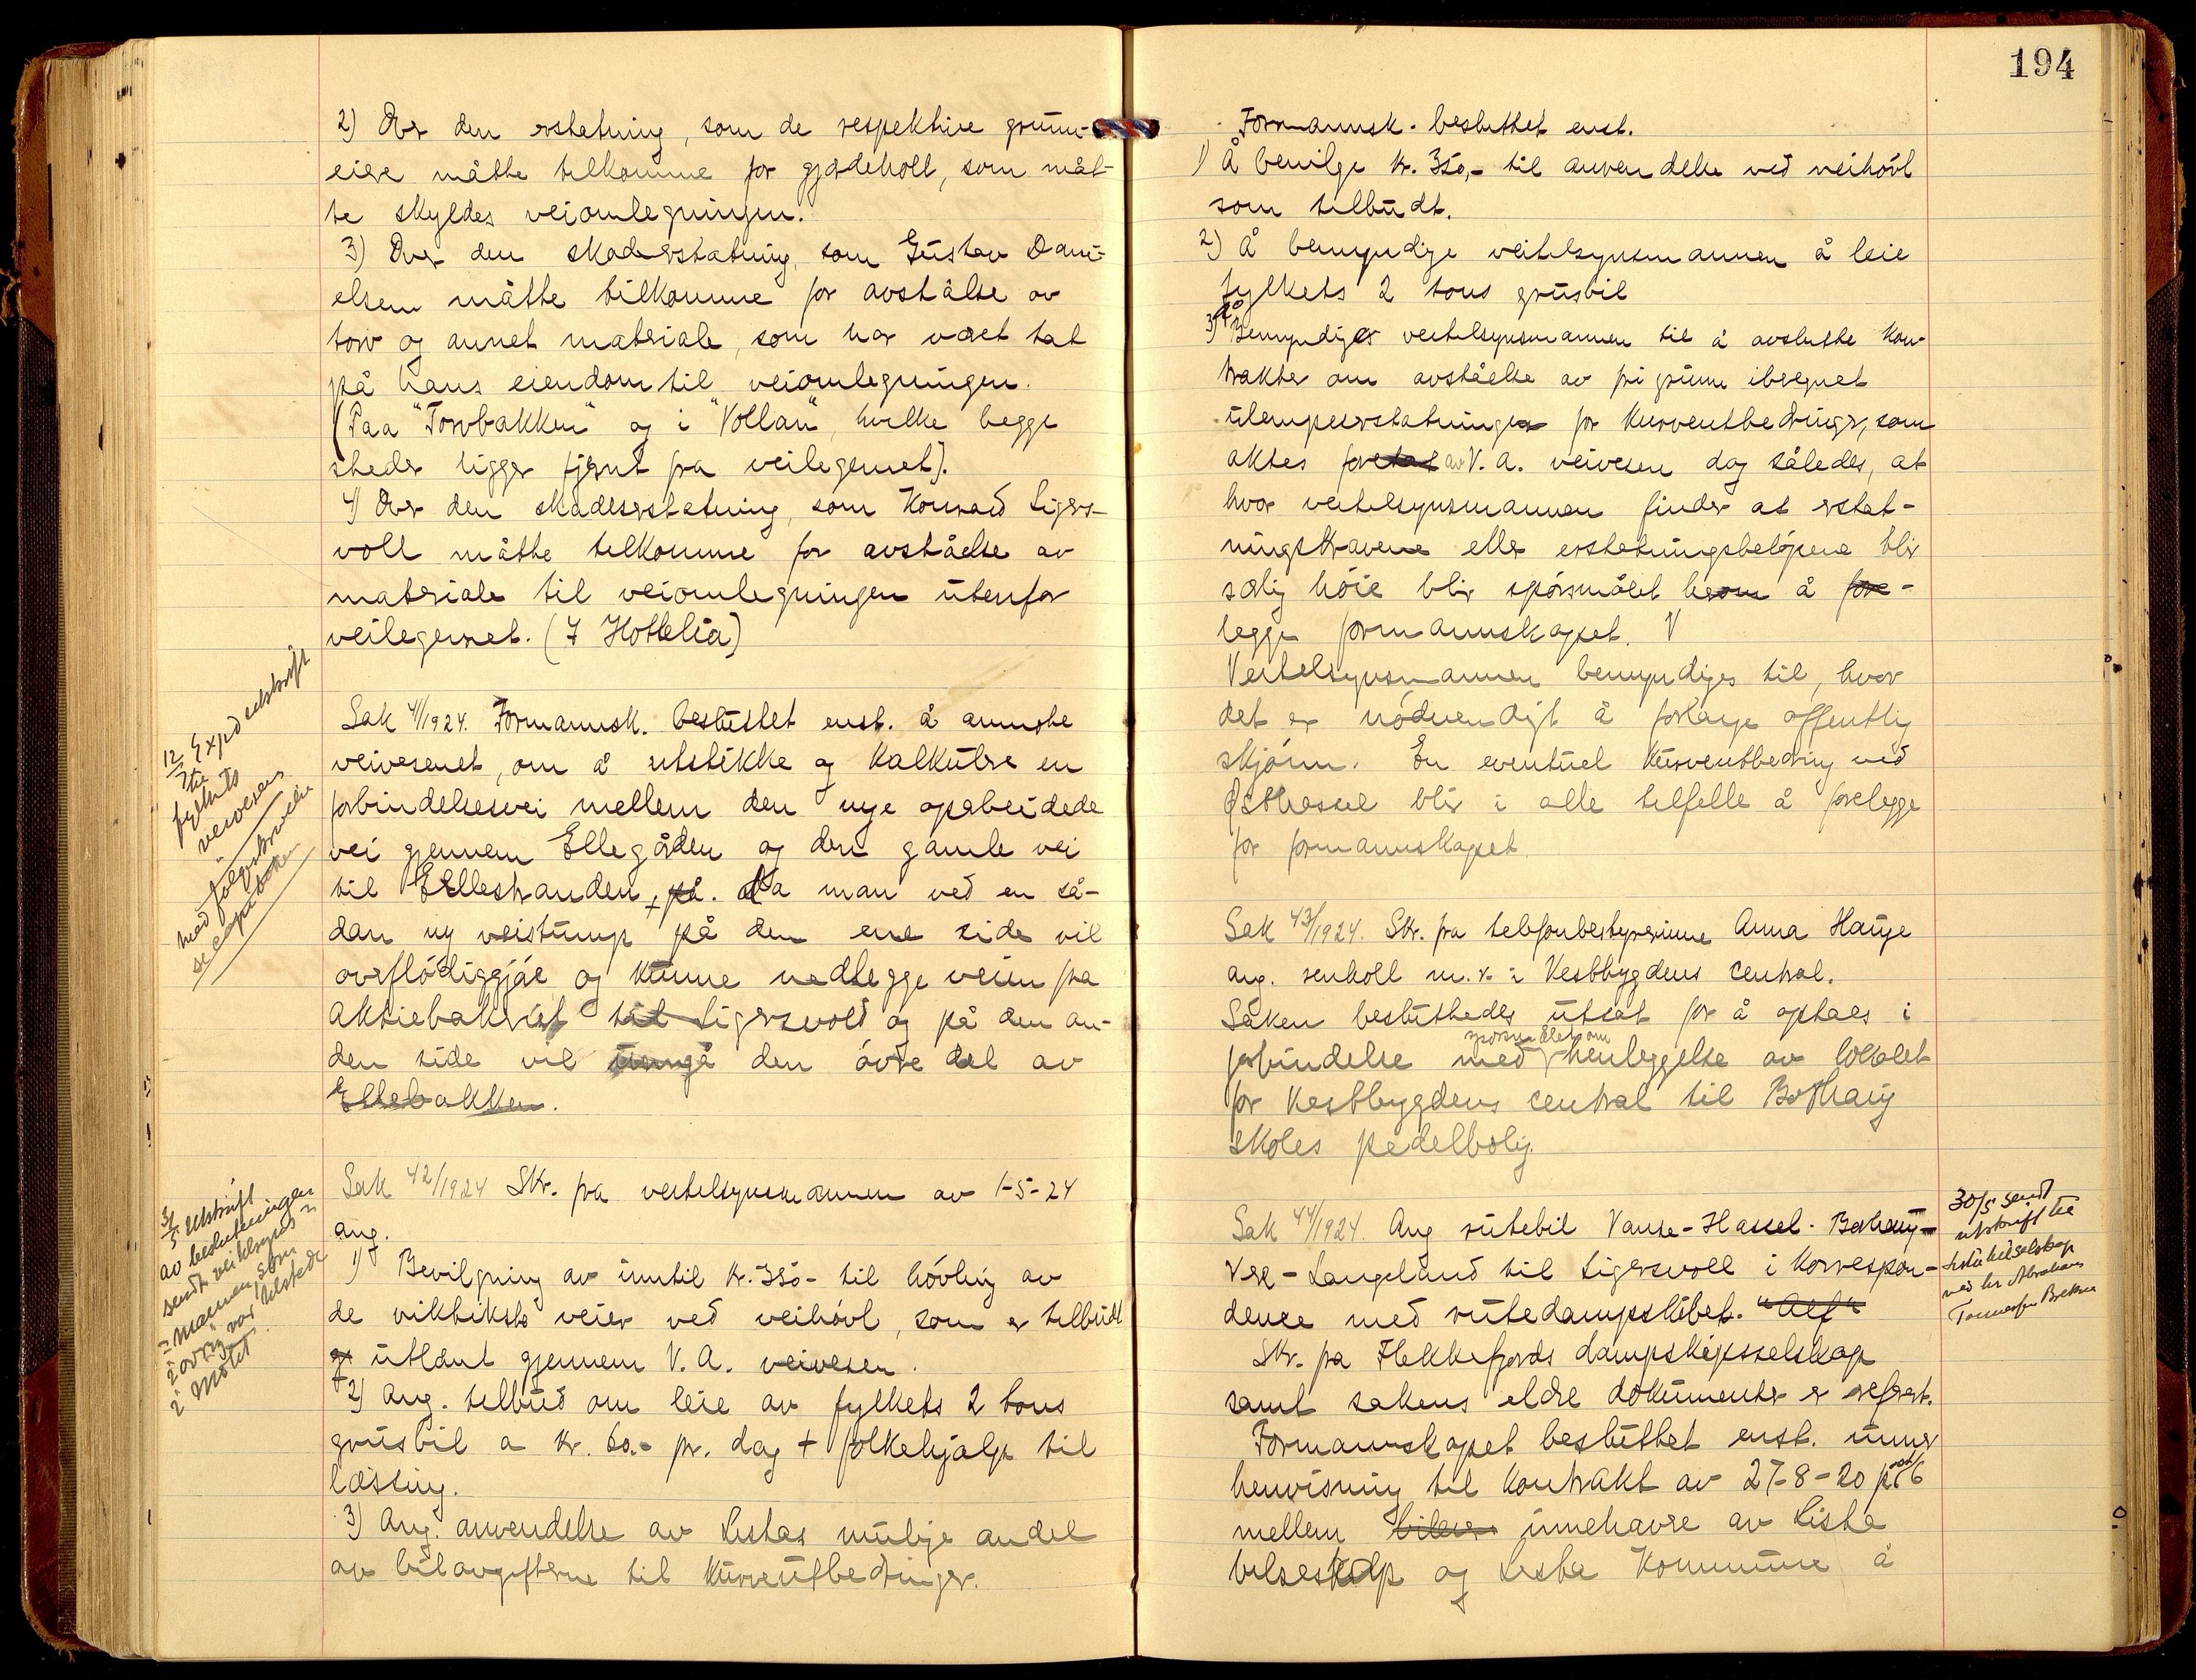 2) Over den erstatning, som de respektive grunn-
eiere måtte tilkomme for gjærdehold, som måt-
te skyldes veiomlegningen.
3) Over den skadeerstatning, som Gustav Dani-
elsen måtte tilkomme for avståelse av
torv og annet materiale, som har været tat
på hans eiendom til veiomlegningen.
(Paa "Torvbakken" og i "Vollan", hvilke begge
steder ligger fjernt fra veilegemet).
4) Over den skadeserstatning, som Konrad Sigers-
voll måtte tilkomme for avståelse av
materiale til veiomlegningen utenfor
veilegemet. (I Hottelia)
12/7 Expd utskrift
til
fylkets
veivesen
med følgeskrivelse
se kopieboken
Sak 41/1924. Formannsk. besluttet enst. å anmode
veivesenet, om å utstikke og kalkulere en
forbindelsesvei mellem den nye oparbeidede
vei gjennem Ellegården og den gamle vei
til Ellestranden, på. da man ved en så-
dan ny veistump på den ene side vil
overflødiggjøre og kunne nedlegge veien fra
Aktiebakeriet til Sigersvold og på den an-
den side vil unngå den øvre del av
Ellebakken.
31/5 utskrift
av beslutningen
sendt veitilsyns-
mannen, som
i øvrig var tilstede
i møtet.
Sak 42/1924 Skr. fra veitilsynsmannen av 1-5-24
ang.
1) Bevilgning av inntil kr. 350- til høvling av
de viktikste veier ved veihøvl, som er tilbudt
og utlånt gjennem V. A. veivesen.
2) Ang. tilbud om leie av fylkets 2 tons
grusbil a kr. 60.- pr. dag + folkehjælp til
læssing.
3) Ang. anvendelse av Listas mulige andel
av bilavgifterne til kurveutbedringer.
194
Formannsk. besluttet enst.
1) Å bevilge kr. 350,- til anvendelse ved veihøvl
som tilbudt.
2) Å bemyndige veitilsynsmannen å leie
fylkets 2 tons grusbil
3) Å Bemyndiger veitilsynsmannen til å avslutte kon-
trakter om avståelse av fri grunn iberegnet
ulempeerstatninger for kurveutbedringer, som
aktes foretat av V. A. veivesen dog således, at
hvor veitilsynsmannen finder at erstat-
ningskravene eller erstatningsbeløpene blir
særlig høie blir spørsmålet herom å fore-
legge formannskapet.
Veitilsynsmannen bemyndiges til, hvor
det er nødvendigt å forlange offentlig
skjønn. En eventuel kurveutbedring ved
Østhassel blir i alle tilfelle å forelegge
for formannskapet.
Sak 43/1924. Skr. fra telefonbestyrerinne Anna Hauge
ang. renhold m.v. i Vestbygdens central.
Saken besluttedes utsat for å optaes i
spørsmålet om
forbindelse med henleggelse av lokalet
for Vestbygdens central til Borhaug
skoles pedelbolig.
30/5 sendt
utskrift til
Lista bilselskap
ved hr Abraham
Tønnessen Brekne
Sak 44/1924. Ang rutebil Vanse-Hassel-Borhaug-
Vere-Langeland til Sigersvoll i korrespon-
dence med rutedampskibet. "Alf"
Skr. fra Flekkefjords dampskipsselskap
samt sakens eldre dokumenter er referert.
Formannskapet besluttet enst. unner
henvisning til kontrakt av 27-8-20 post 6
mellem bileier innehavere av Lista
bilselskap og Lista kommune å